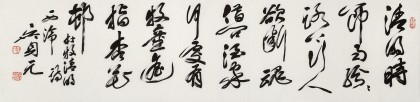 清明時
節雨紛紛
路上行人
欲斷魂
借問酒家
何處有
牧童遙
指杏花
村
杜牧清明
詩